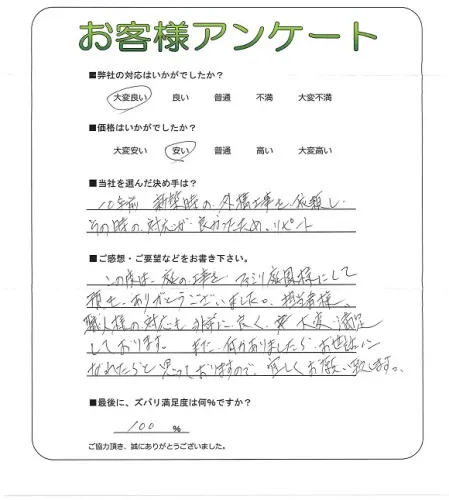 お客様アンケート
■弊社の対応はいかがでしたか？
大変良い 良い 普通 不満 大変不満
■価格はいかがでしたか？
大変安い 安い 普通 高い 大変高い
■当社を選んだ決め手は？
10年前 新築時の、外構工事を、依頼し
その時の、対応が、良かったため、リピート
■ご感想・ご要望などをお書き下さい。
この度は、庭の工事を 庭園様にして
頂き、ありがとうございました。担当者様、
職人様の対応も非常に良く、大変、満足
しております。 また、何かありましたら、お世話に
なれたらと思っておりますので、宜しくお願い致します。
■最後に、ズバリ満足度は何%ですか？
100 %
ご協力頂き、誠にありがとうございました。